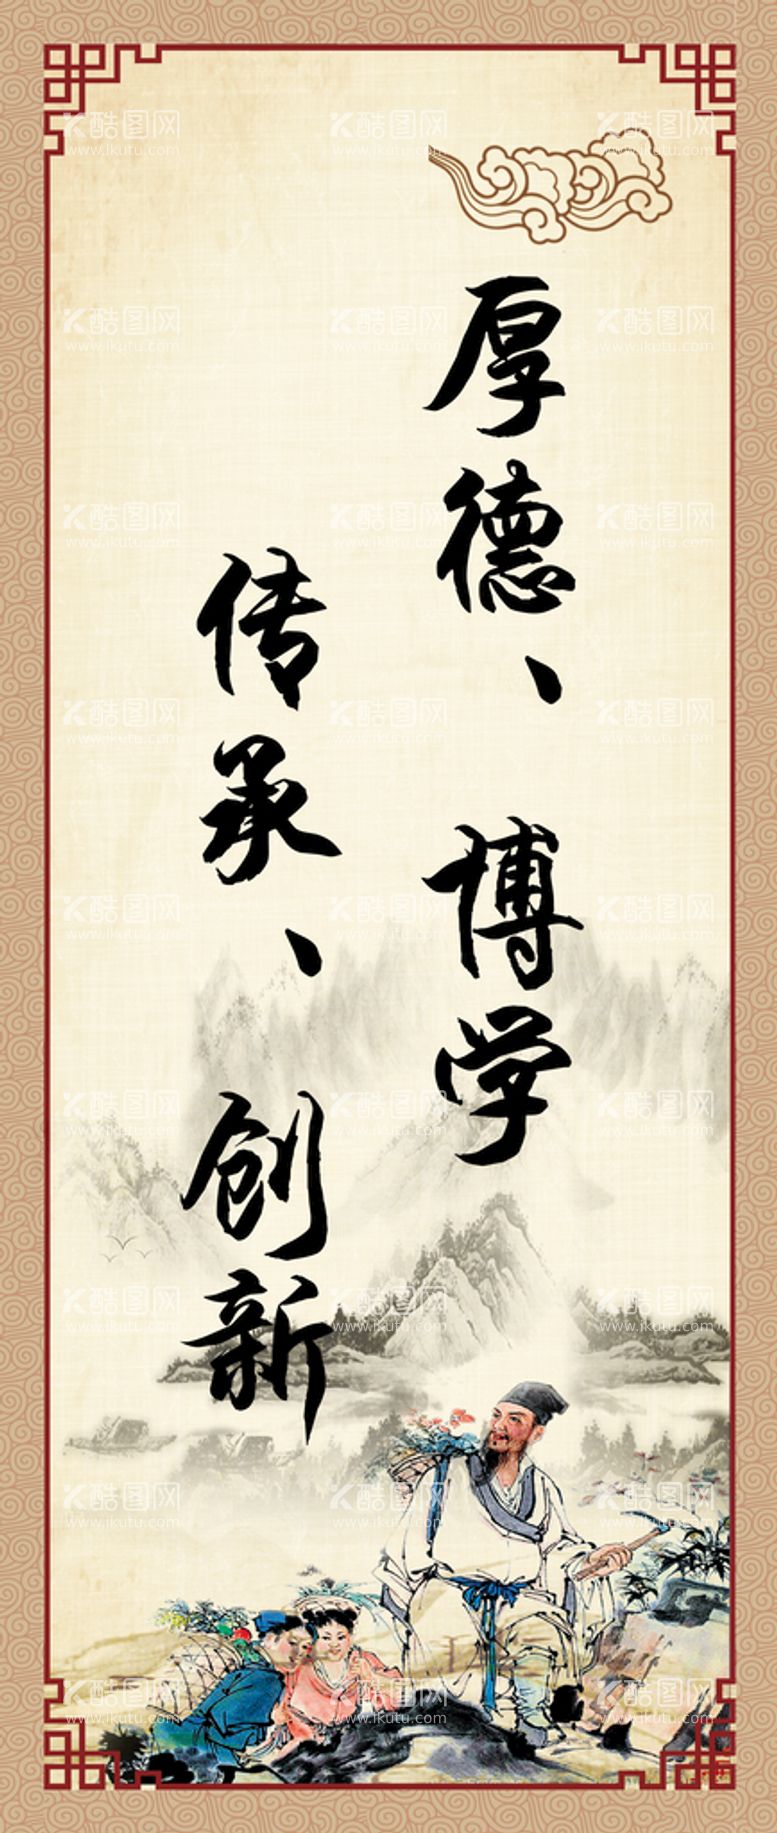 厚德、博学
传承、创新
酷图网
www.ikutu.com